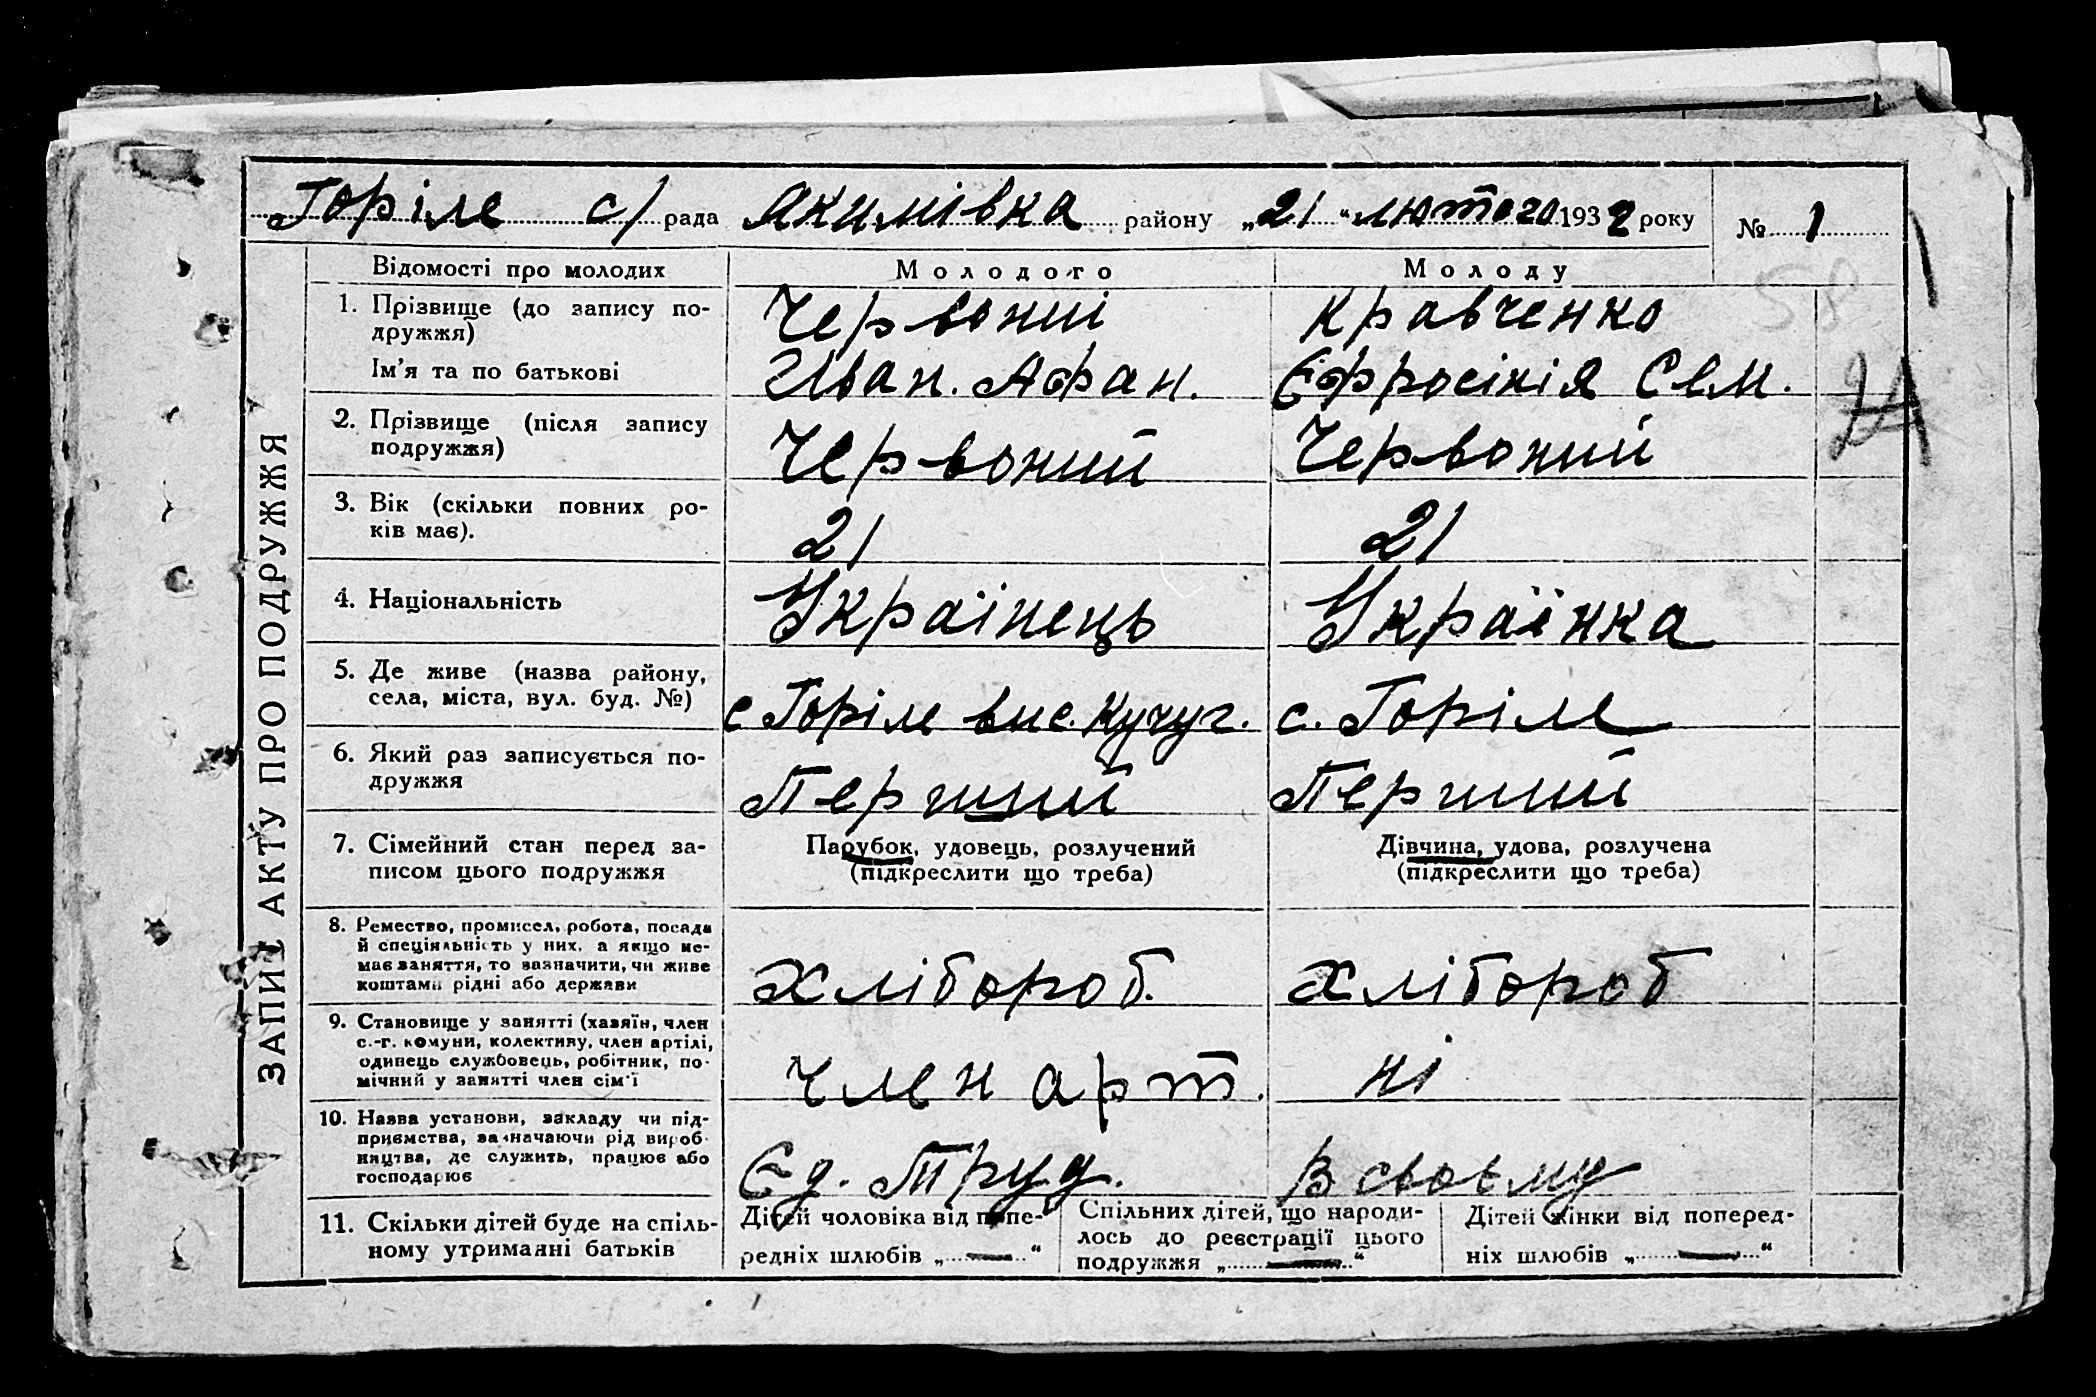 Горіле с/ рада Якимівка району „21“ лютого 1932 року № 1
58
24
ЗАПИС АКТУ ПРО ПОДРУЖЖЯ
Відомості про молодих
Молодого
Молоду
1. Прізвище (до запису по-
дружжя)
Червоний
Кравченко
Ім'я та по батькові
Иван. Афан.
Єфросінія Сем.
2. Прізвище (після запису
подружжя)
Червоний
Червоний
3. Вік (скільки повних ро-
ків має).
21
21
4. Національність
Українець
Українка
5. Де живе (назва району,
села, міста, вул. буд. №)
с Горіле вис. Кучуг.
с. Горіле
6. Який раз записується по-
дружжя
Перший
Перший
7. Сімейний стан перед за-
писом цього подружжя
Парубок, удовець, розлучений
(підкреслити що треба)
Дівчина, удова, розлучена
(підкреслити що треба)
8. Ремество, промисел, робота, посада
й спеціяльність у них, а якщо не-
має заняття, то зазначити, чи живе
коштами рідні або держави
Хлібороб.
Хлібороб
9. Становище у занятті (хазяїн, член
с.-г. комуни, колективу, член артілі,
одинець службовець, робітник, по-
мічний у занятті член сім'ї
Член арт.
ні
10. Назва установи, закладу чи під-
приємства, зазначаючи рід вироб-
ництва, де служить, працює або
господарює
Єд. Труд.
в своєму
11. Скільки дітей буде на спіль-
ному утриманні батьків
Дітей чоловіка від попе-
редніх шлюбів „ — “
Спільних дітей, що народи-
лось до реєстрації цього
подружжя „ — “
Дітей жінки від поперед-
ніх шлюбів „ — “